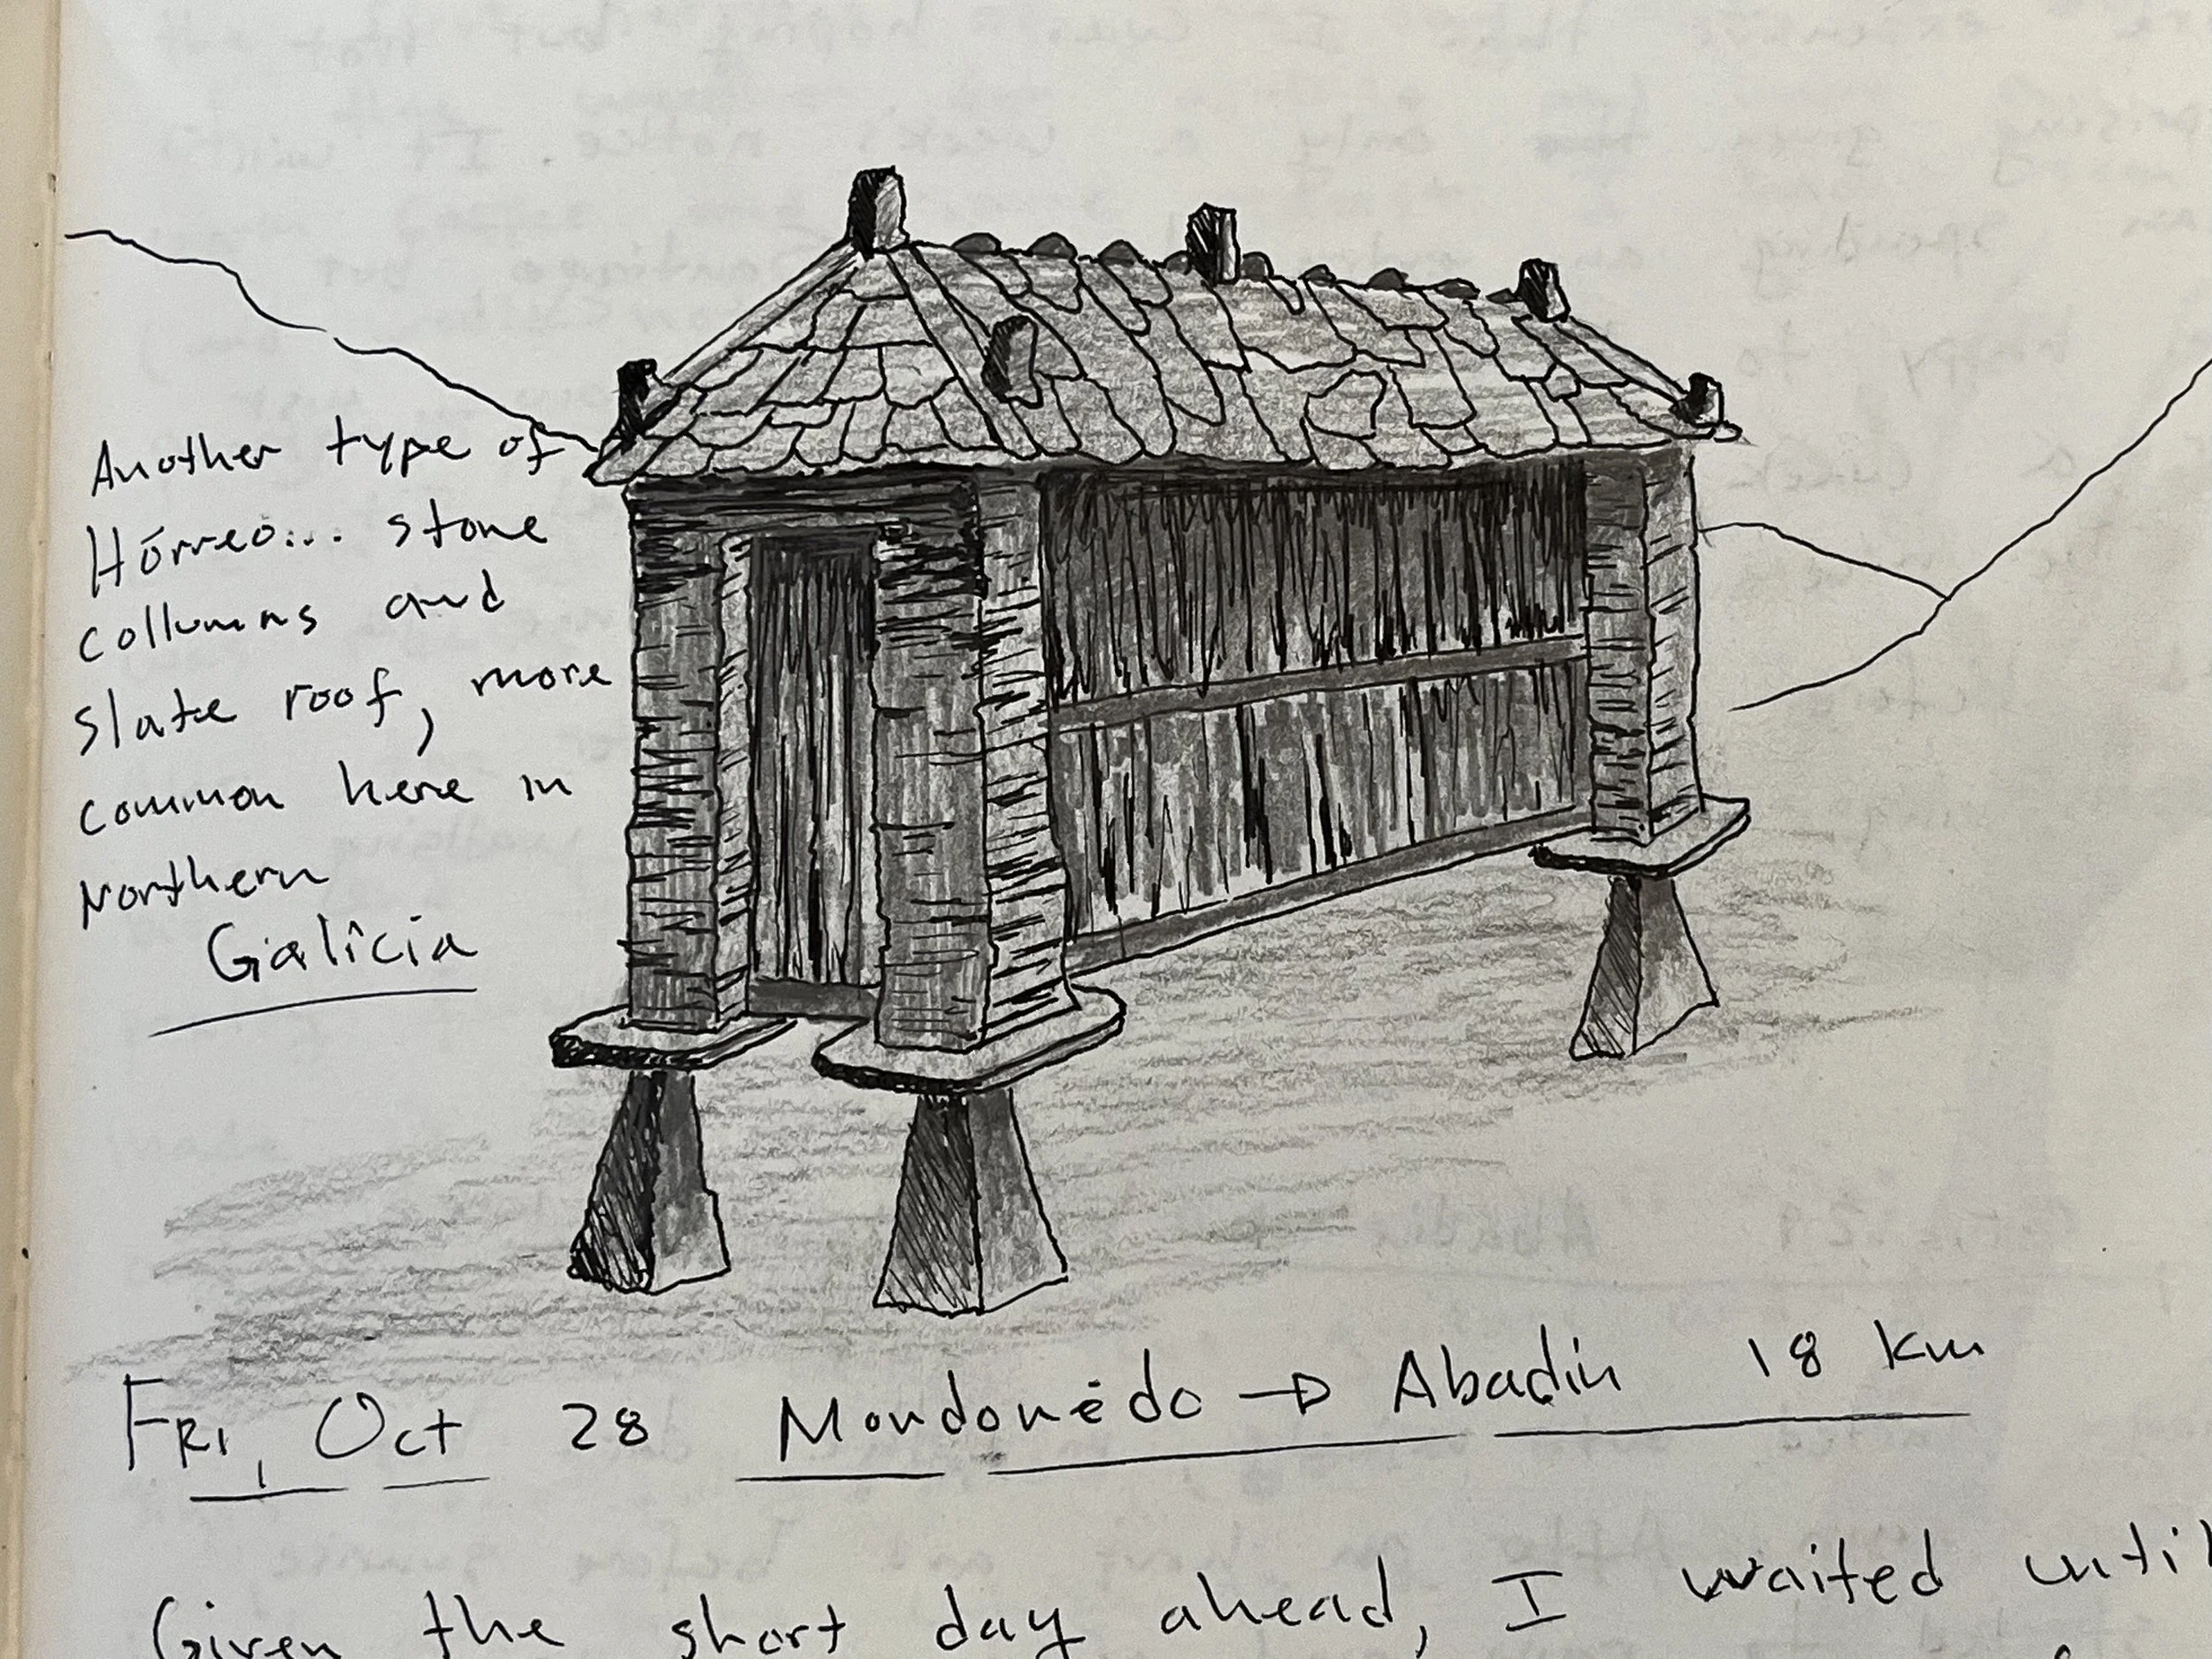 Another type of
Hórreo... stone
collumns and
slate roof, more
common here in
Northern
Galicia
Fri, Oct 28 Mondonėdo → Abadín 18 km
Given the short day ahead, I waited until